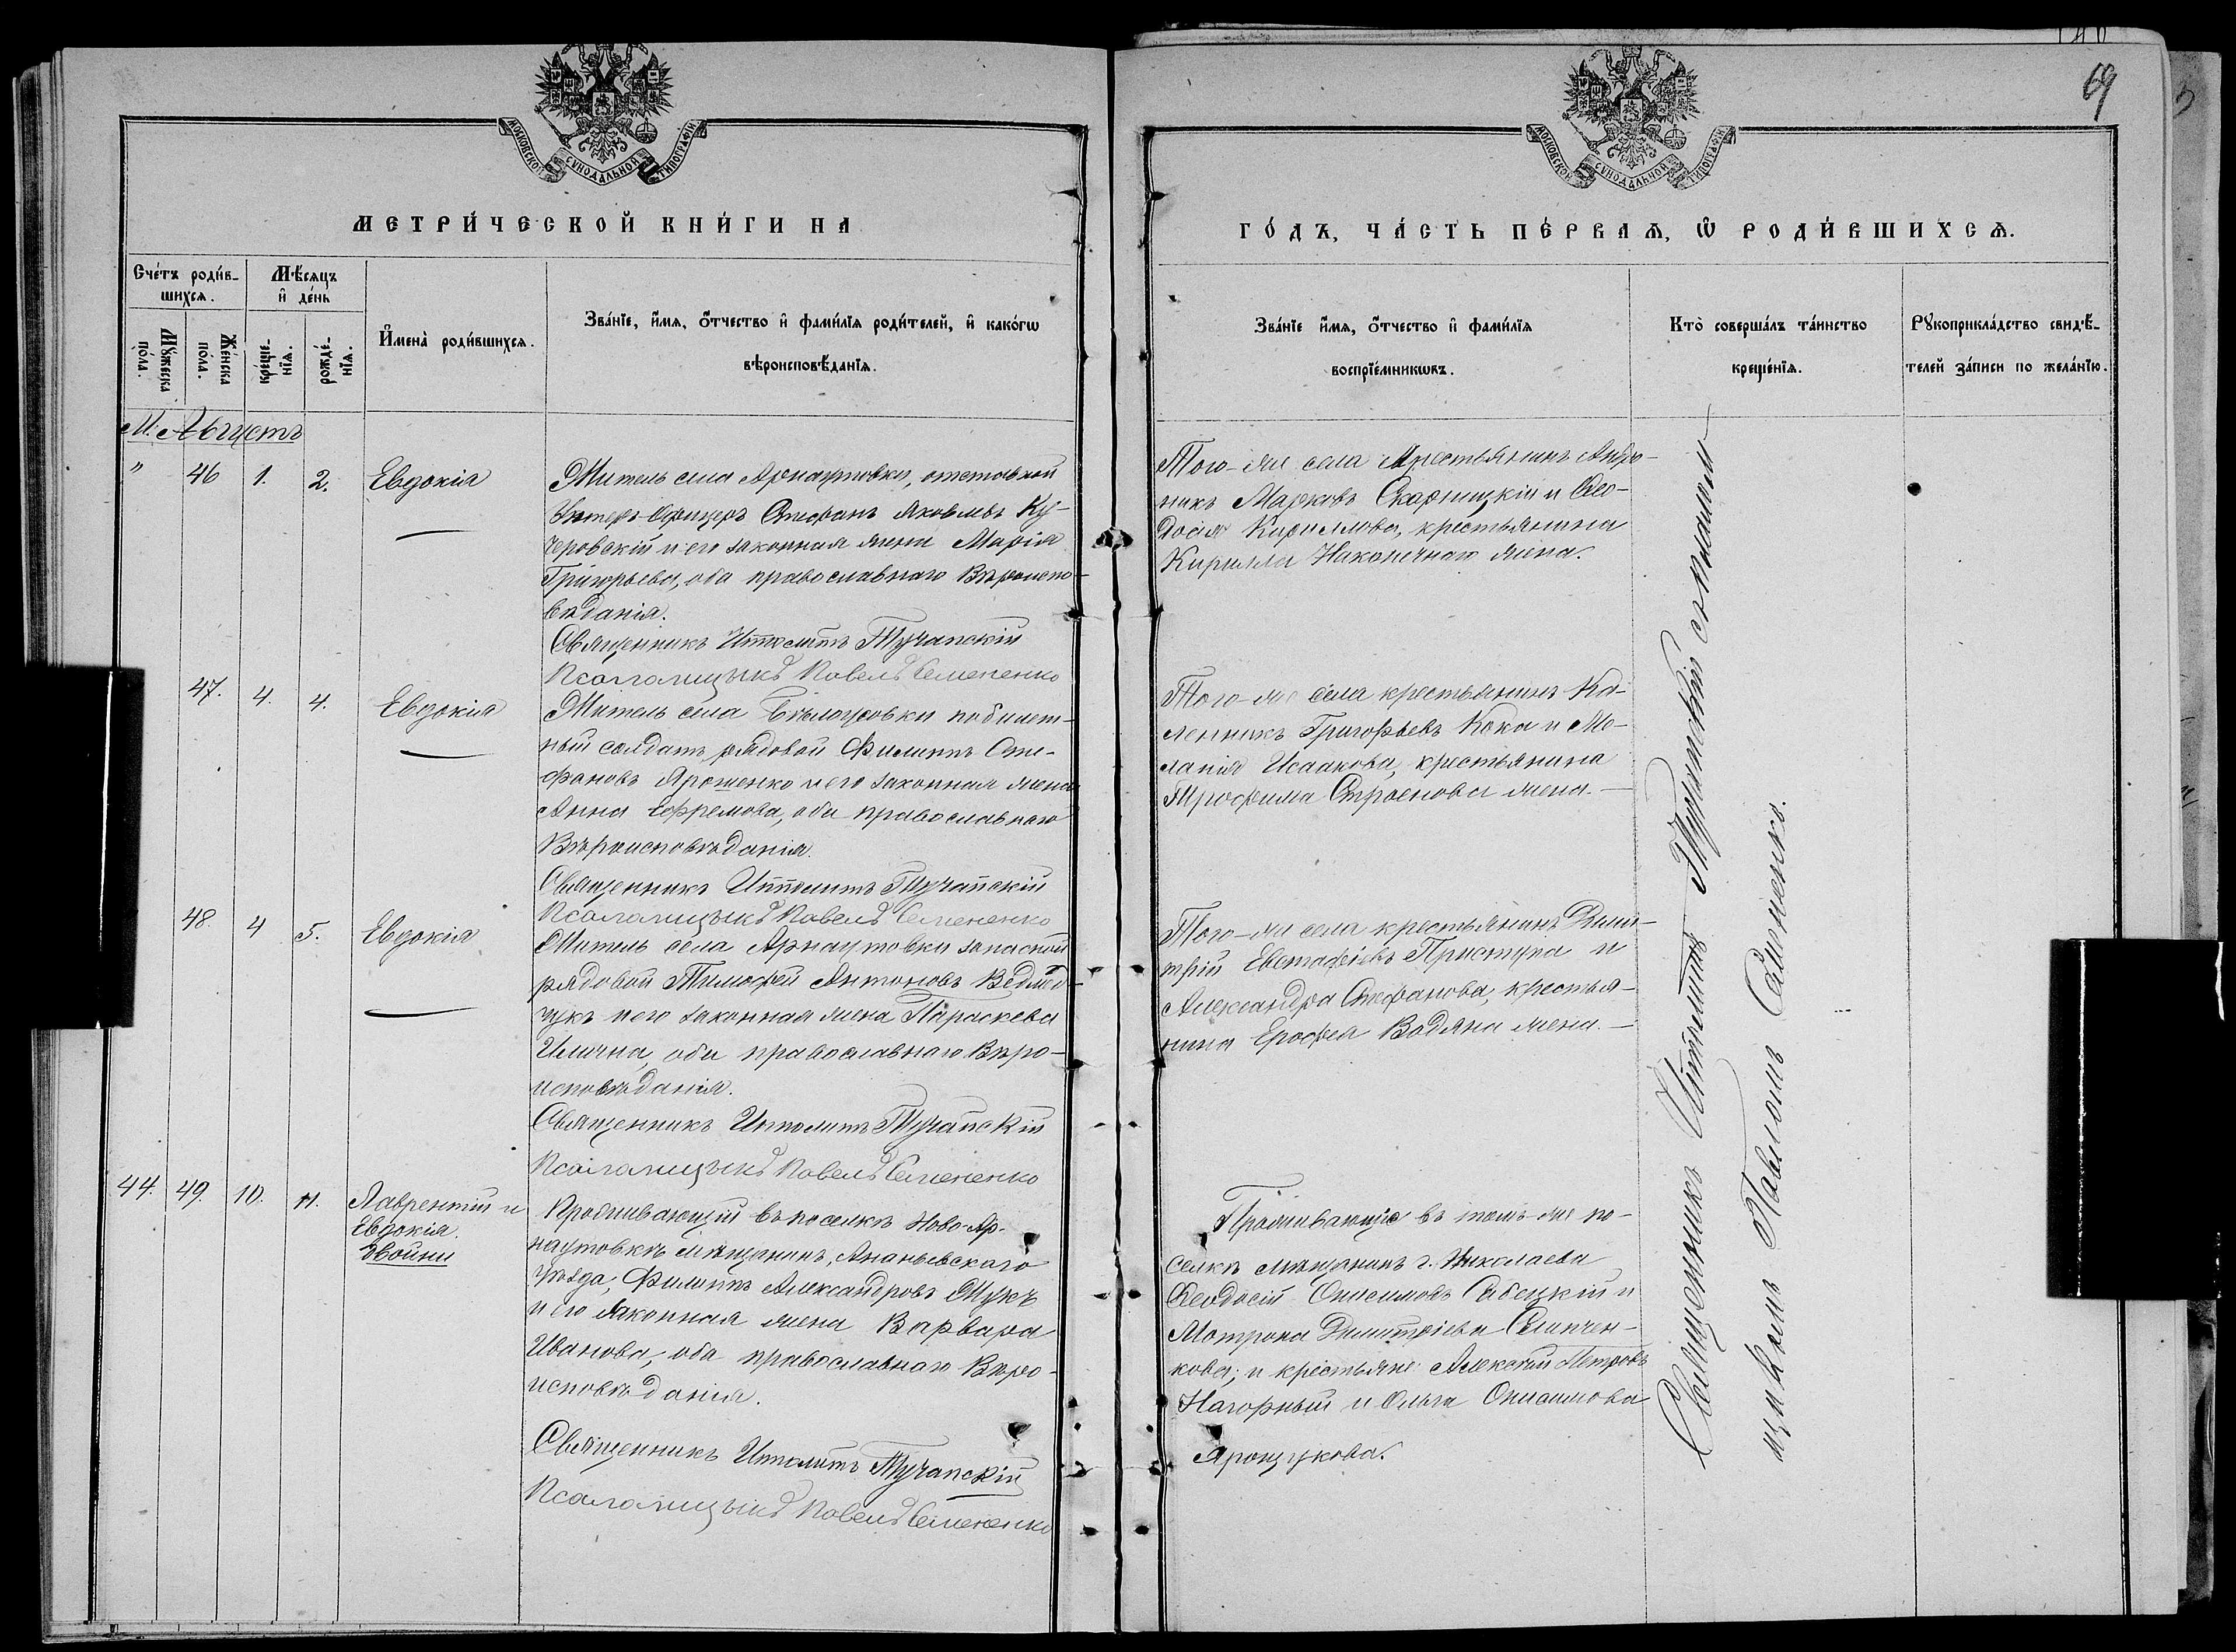 69
МОСКОВСКОЙ СѴНОДАЛЬНОЙ ТИПОГРАФІИ
МОСКОВСКОЙ СѴНОДАЛЬНОЙ ТИПОГРАФІИ
МЕТРИ́ЧЕСКОЙ КНИ́ГИ НА
ГО́ДЪ, ЧА́СТЬ ПЕ́РВАѦ, Ѡ РОДИ́ВШИХСѦ.
Сче́тъ роди́в-
шихсѧ.
Мѣ́сѧцъ
и҆ де́нь
Мꙋ́жеска
по́ла.
Же́нска
по́ла.
креще́-
нїѧ.
рожде́-
нїѧ.
И҆мена̀ роди́вшихсѧ.
Зва́нїе, и҆́мѧ, ѻ҆́тчество и҆ фами́лїѧ роди́телей, и҆ како́гѡ
вѣроисповѣ́данїѧ.
Зва́нїе и҆́мѧ, ѻ҆́тчество и҆ фами́лїѧ
воспрїе́мникѡвъ.
Кто̀ соверша́лъ та́инство
креще́нїѧ.
Рꙋкоприкла́дство свидѣ́-
телей за́писи по жела́нїю.
М. Августъ
" 46 1. 2. Евдокія
Житель села Арнаутовки, отставной
Унтеръ-Офицеръ Стефанъ Яковлевъ Ку-
черовскій и его законная жена Марія
Григорьева, оба православнаго Вѣроиспо-
вѣданія.
Священникъ Ипполитъ Тучапскій
Псаломщикъ Павелъ Семененко
Того-же села Крестьянинъ Андро-
никъ Марковъ Скарницкій и Ѳео-
досія Кириллова, крестьянина
Кирилла Наконечнаго жена.
47. 4. 4. Евдокія
Житель села Бѣлоусовки побилет-
ный солдатъ, рядовой Филиппъ Сте-
фановъ Ярошенко и его законная жена
Анна Ефремова, оба православнаго
Вѣроисповѣданія.
Священникъ Ипполитъ Тучапскій
Псаломщикъ Павелъ Семененко
Того-же села крестьянинъ Ка-
ленникъ Григорьевъ Кока и Ме-
ланія Исаакова, крестьянина
Трофима Строенова жена.
48. 4 5. Евдокія
Житель села Арнаутовки запасной
рядовой Тимофей Антоновъ Ведмед-
чукъ и его законная жена Параскева
Ильина, оба православнаго Вѣро-
исповѣданія.
Священникъ Ипполитъ Тучапскій
Псаломщикъ Павелъ Семененко
Того-же села крестьянинъ Дими-
трій Евстафіевъ Приступа и
Александра Стефанова, крестья-
нина Ерофея Водяна жена.
44. 49. 10. 11. Лаврентій и
Евдокія.
двойни
Проживающій въ поселкѣ Ново-Ар-
наутовкѣ мѣщанинъ, Ананьевскаго
уѣзда, Филиппъ Александровъ Жукъ
и его законная жена Варвара
Иванова, оба православнаго Вѣро-
исповѣданія.
Священникъ Ипполитъ Тучапскій
Псаломщикъ Павелъ Семененко
Проживающіе въ томъ-же по-
селкѣ мѣщанинъ г. Николаева
Ѳеодосій Онисимовъ Сабецкій и
Мотрона Димитріева Селипчен-
кова; и крестьяне: Алексѣй Петровъ
Нагорный и Ольга Онисимова
Ярощукова.
Священникъ Ипполитъ Тучапскій съ псалом-
щикомъ Павломъ Семененко.